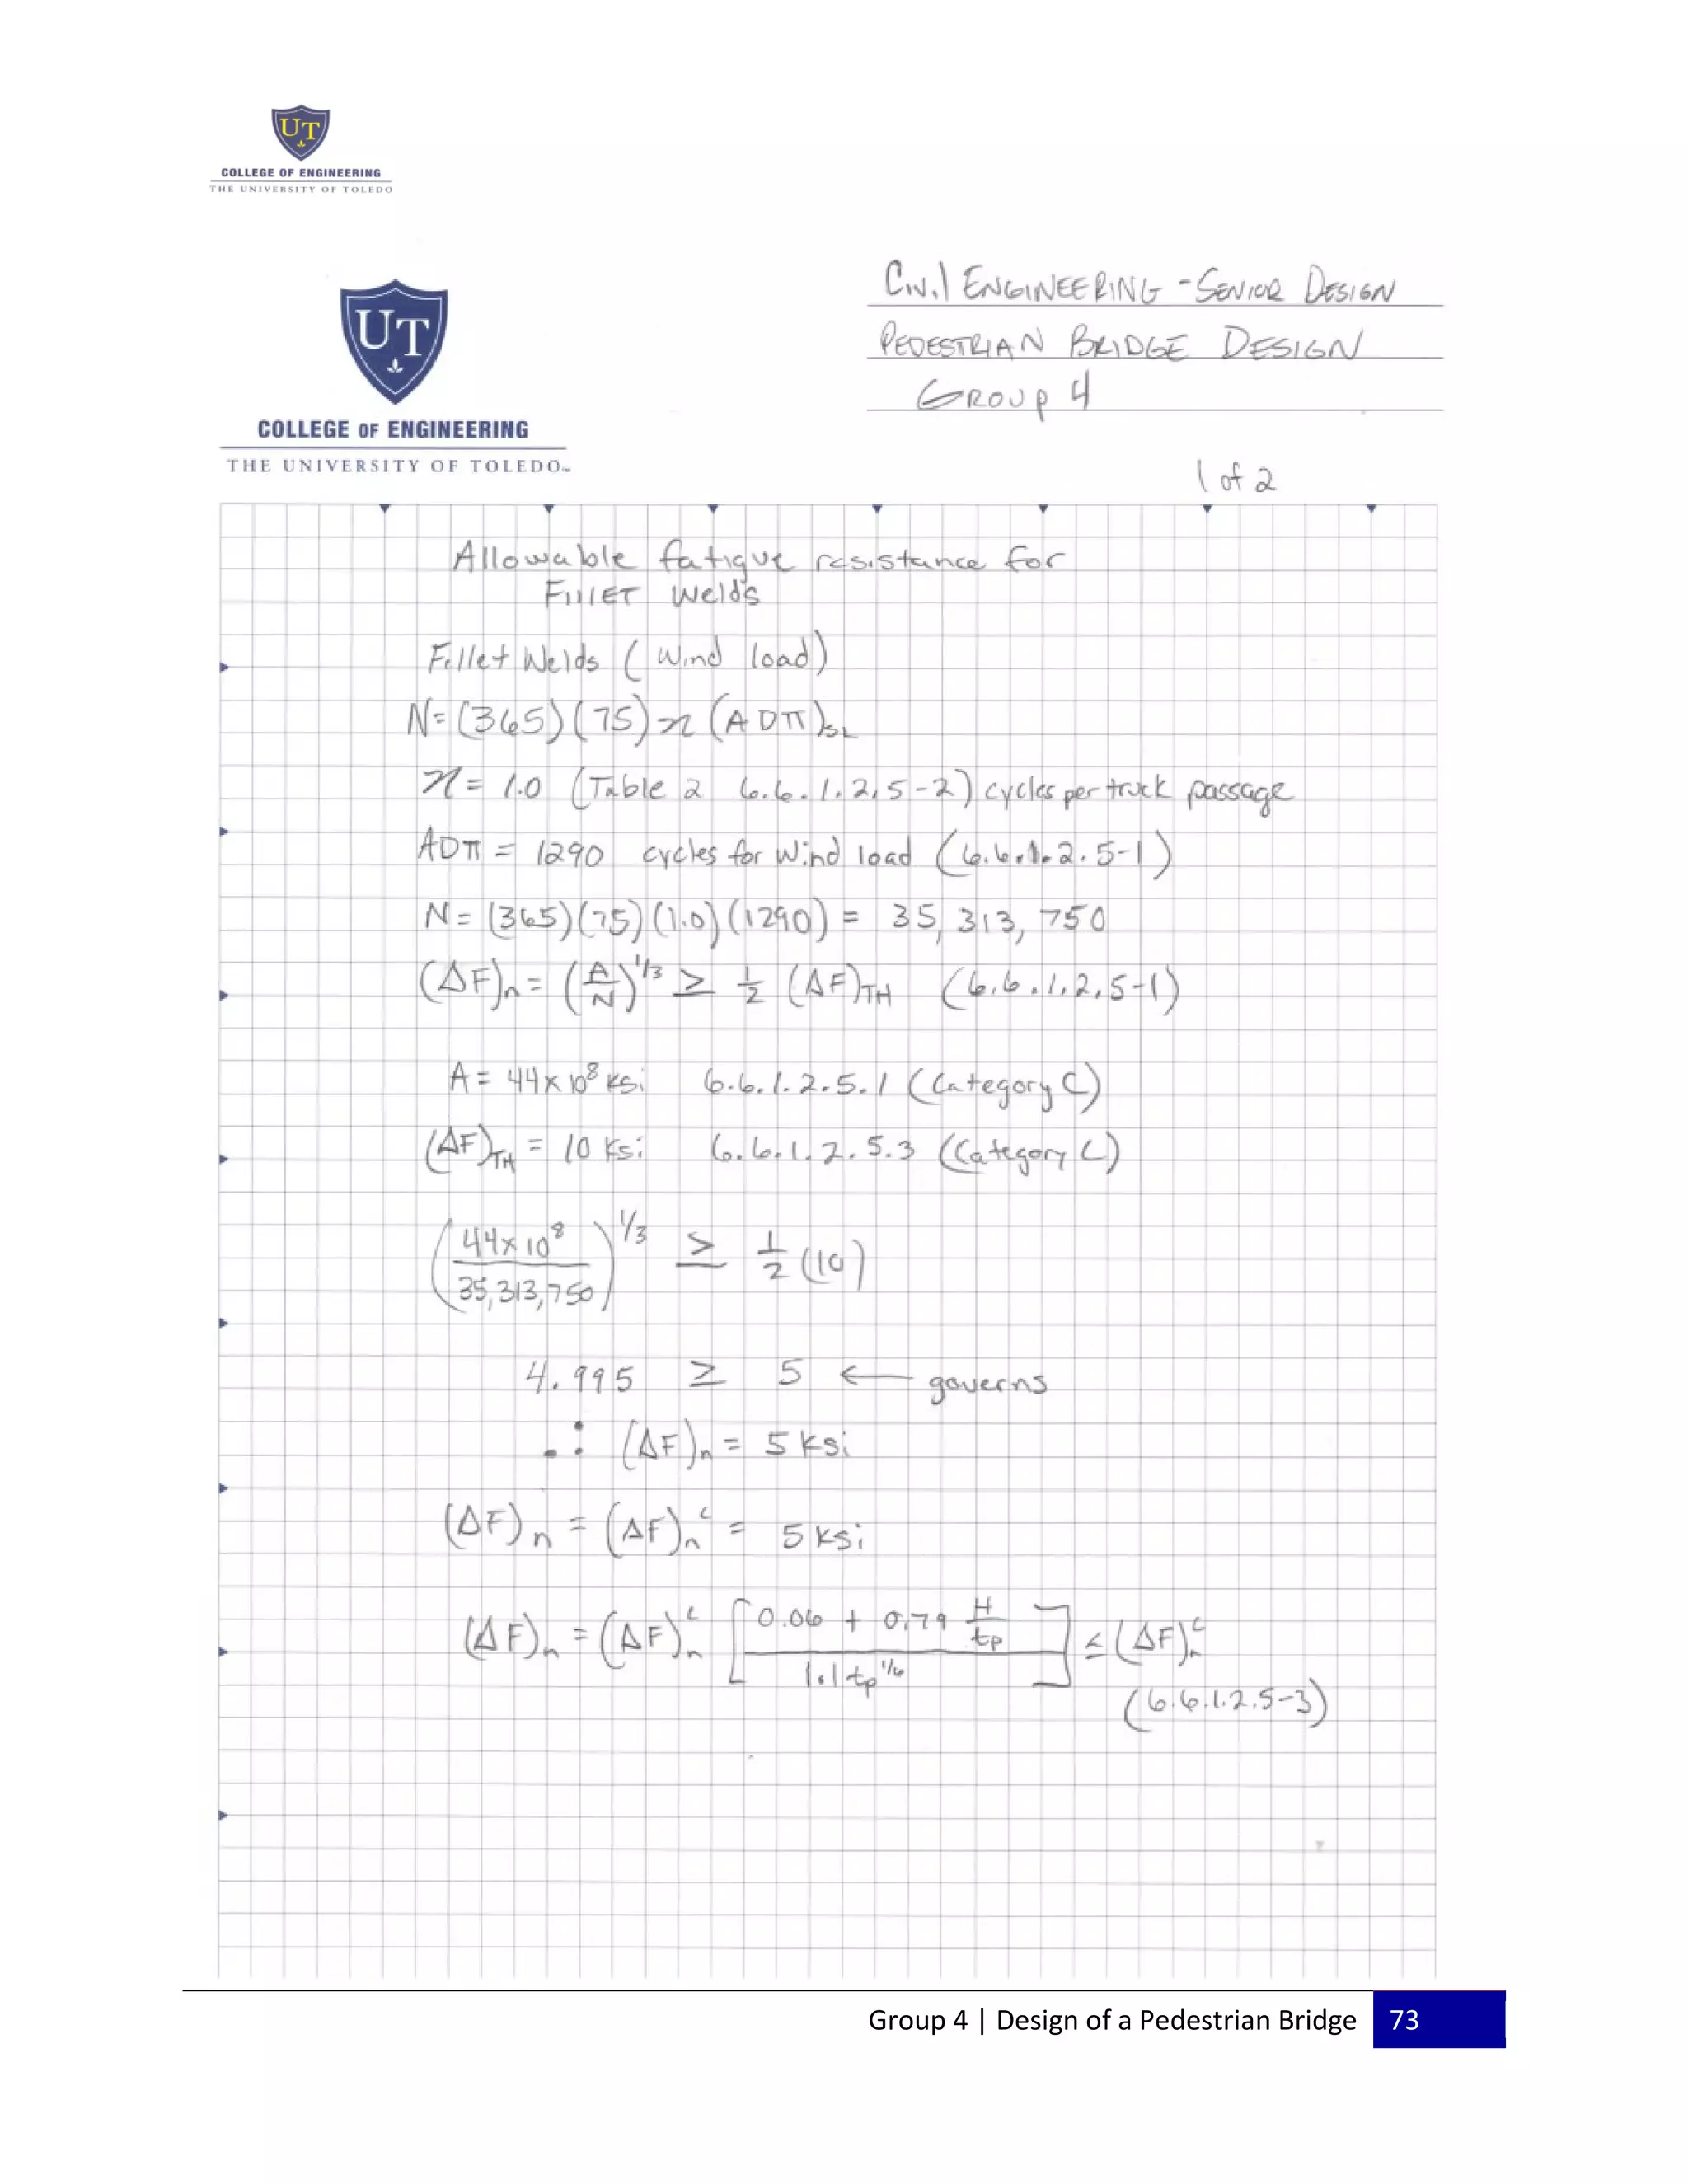 UT
COLLEGE OF ENGINEERING
THE UNIVERSITY OF TOLEDO
Civil ENGINEERING - SENIOR DESIGN
PEDESTRIAN BRIDGE DESIGN
GROUP 4
UT
COLLEGE OF ENGINEERING
THE UNIVERSITY OF TOLEDO™
1 of 2
Allowable fatigue resistance for
FillET Welds
Fillet Welds (Wind load)
N = (365)(75) n (ADTT)SL
n = 1.0 (Table 2 6.6.1.2.5-2) cycles per truck passage
ADTT = 1290 cycles for Wind load (6.6.1.2.5-1)
N = (365)(75)(1.0)(1290) = 35,313,750
(ΔF)n = (A/N)^1/3 ≥ 1/2 (ΔF)TH (6.6.1.2.5-1)
A = 44x10^8 ksi 6.6.1.2.5.1 (Category C)
(ΔF)TH = 10 ksi 6.6.1.2.5.3 (Category C)
(44x10^8 / 35,313,750)^1/3 ≥ 1/2 (10)
4.995 ≥ 5 ← governs
∴ (ΔF)n = 5 ksi
(ΔF)n = (ΔF)n^c = 5 ksi
(ΔF)n = (ΔF)n^c [0.06 + 0.79 H/tp / 1.1 tp^1/6] ≤ (ΔF)n^c
(6.6.1.2.5-3)
Group 4 | Design of a Pedestrian Bridge 73